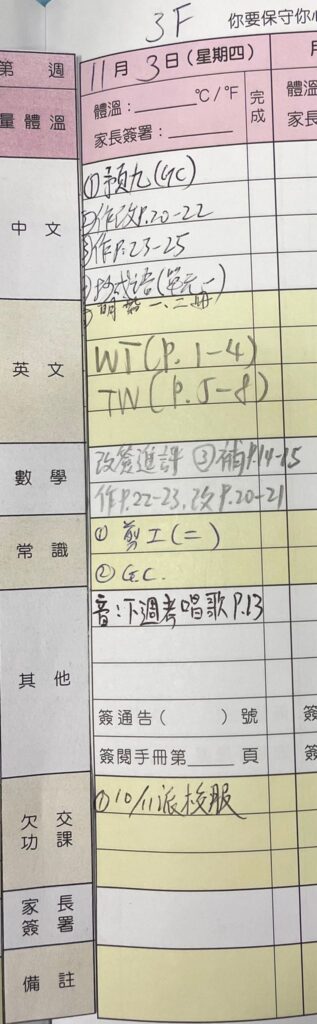 3F 你要保守你心
第 週 11月3日(星期四)
量體溫 體溫：______°C/°F 完成 體溫
家長簽署：______ 家長
中文 ①預九(GC)
②作改P.20-22
③作P.23-25
成語(單元一)
一、二冊
英文 WT(P.1-4)
TW(P.5-8)
數學 改簽進評 ③補P.14-15
作P.22-23,改P.20-21
常識 ① 剪工(二)
② G.C.
其他 音：下週考唱歌P.13
簽通告( )號 簽
簽閱手冊第____頁 簽
欠交功課 ①10/11派校服
家長簽署
備註